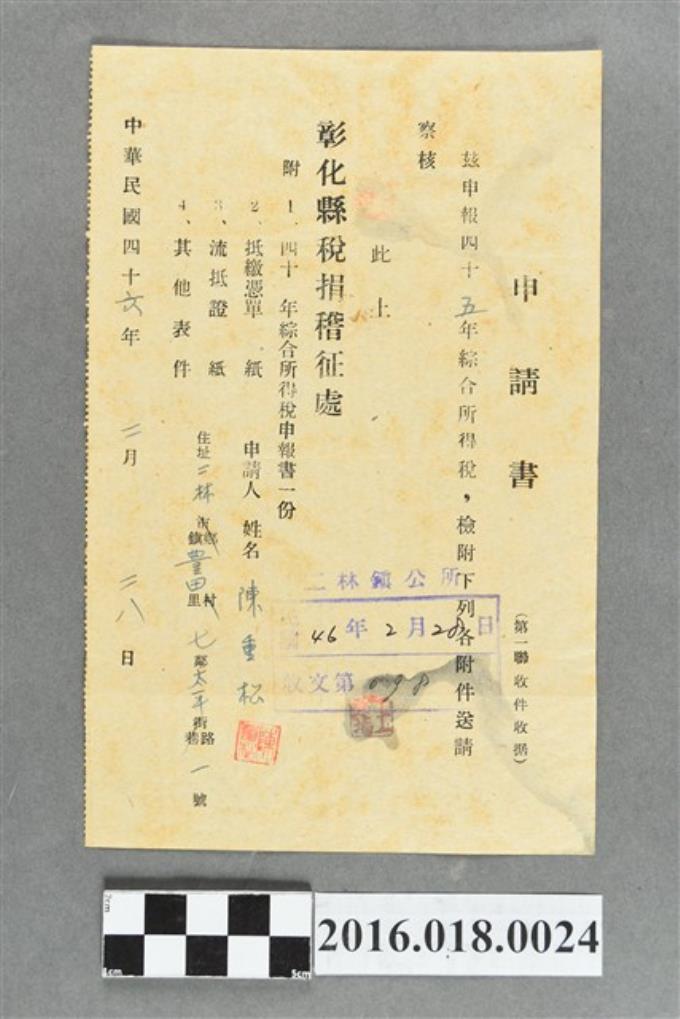 申請書
(第一聯收件收据)
茲申報四十五年綜合所得稅，檢附下列各附件送請
察核
此上
彰化縣稅捐稽征處
附 1、四十 年綜合所得稅申報書一份
2、抵繳憑單 紙
3、流抵證 紙
4、其他表件
申請人 姓名 陳重松
住址 二林 市鄉鎮 豐田 村里 七 鄰 太平 街路巷 一 號
中華民國四十六年 二月 二八日
二林鎮公所
46年2月28日
收文第098
2016.018.0024
2cm
0cm
5cm